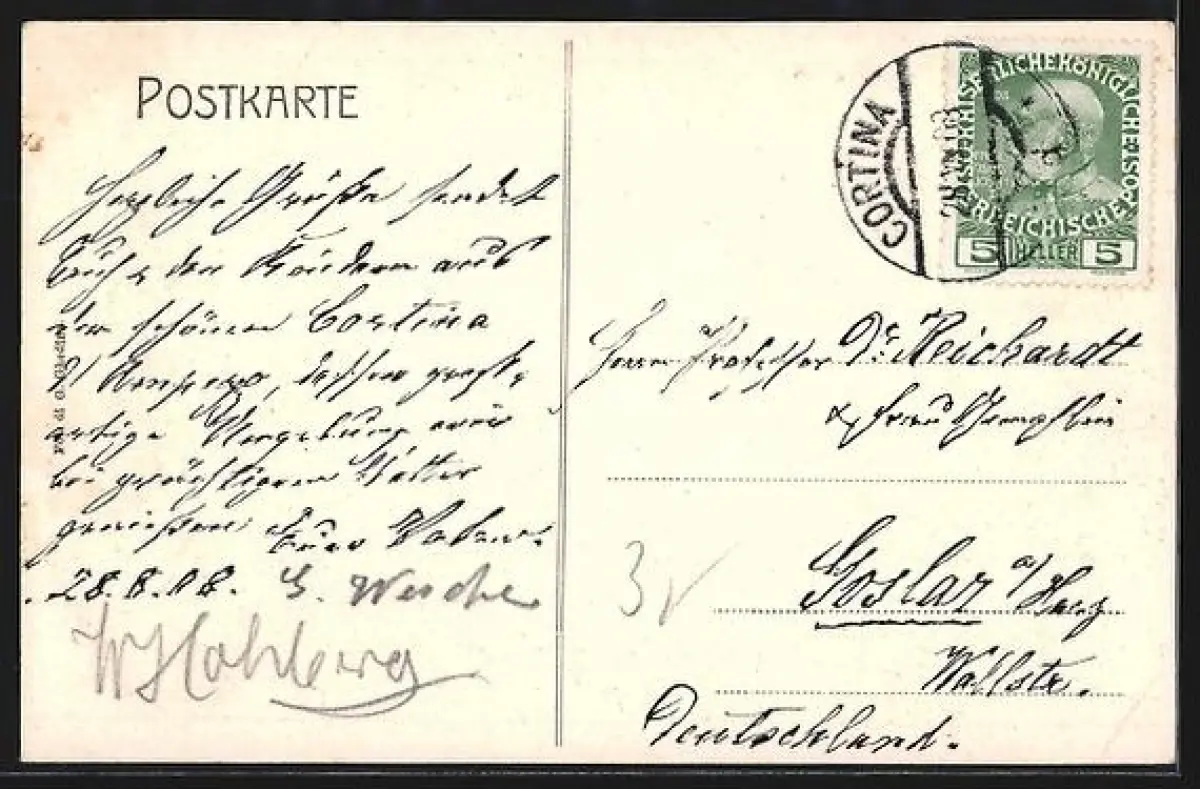 POSTKARTE
Herzliche Grüße sendet
Euch & den Kindern aus
dem schönen Cortina
d'Ampezzo, dessen groß-
artige Umgebung wir
bei prächtigem Wetter
genießen. Euer
28.8.08. G. Wesche
CORTINA
KAISERLICHEKÖNIGLICHE ÖSTERREICHISCHE POST
5 HELLER 5
Herrn Professor Dr. Reichardt
& Frau Gemahlin
Goslar a/Harz
Wallstr.
Deutschland.
3